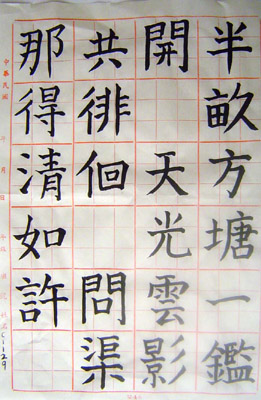 半畝方塘一鑑
開 天光雲影
共徘徊 問渠
那得清如許
中華民國 年 月 日